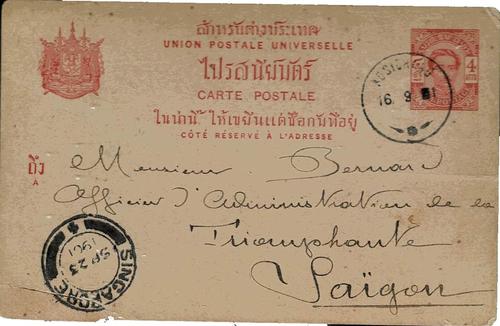 สำหรับต่างประเทศ
UNION POSTALE UNIVERSELLE
ไปรสนียบัตร์
CARTE POSTALE
ในน่านี้ ให้เขียนแต่ชื่อกับที่อยู่
CÔTÉ RÉSERVÉ À L'ADRESSE
4
16 9
ถึง
A
Monsieur Bernard
Officier d'Administration de la
Triomphante
Saïgon
SINGAPORE
SP 23
1901